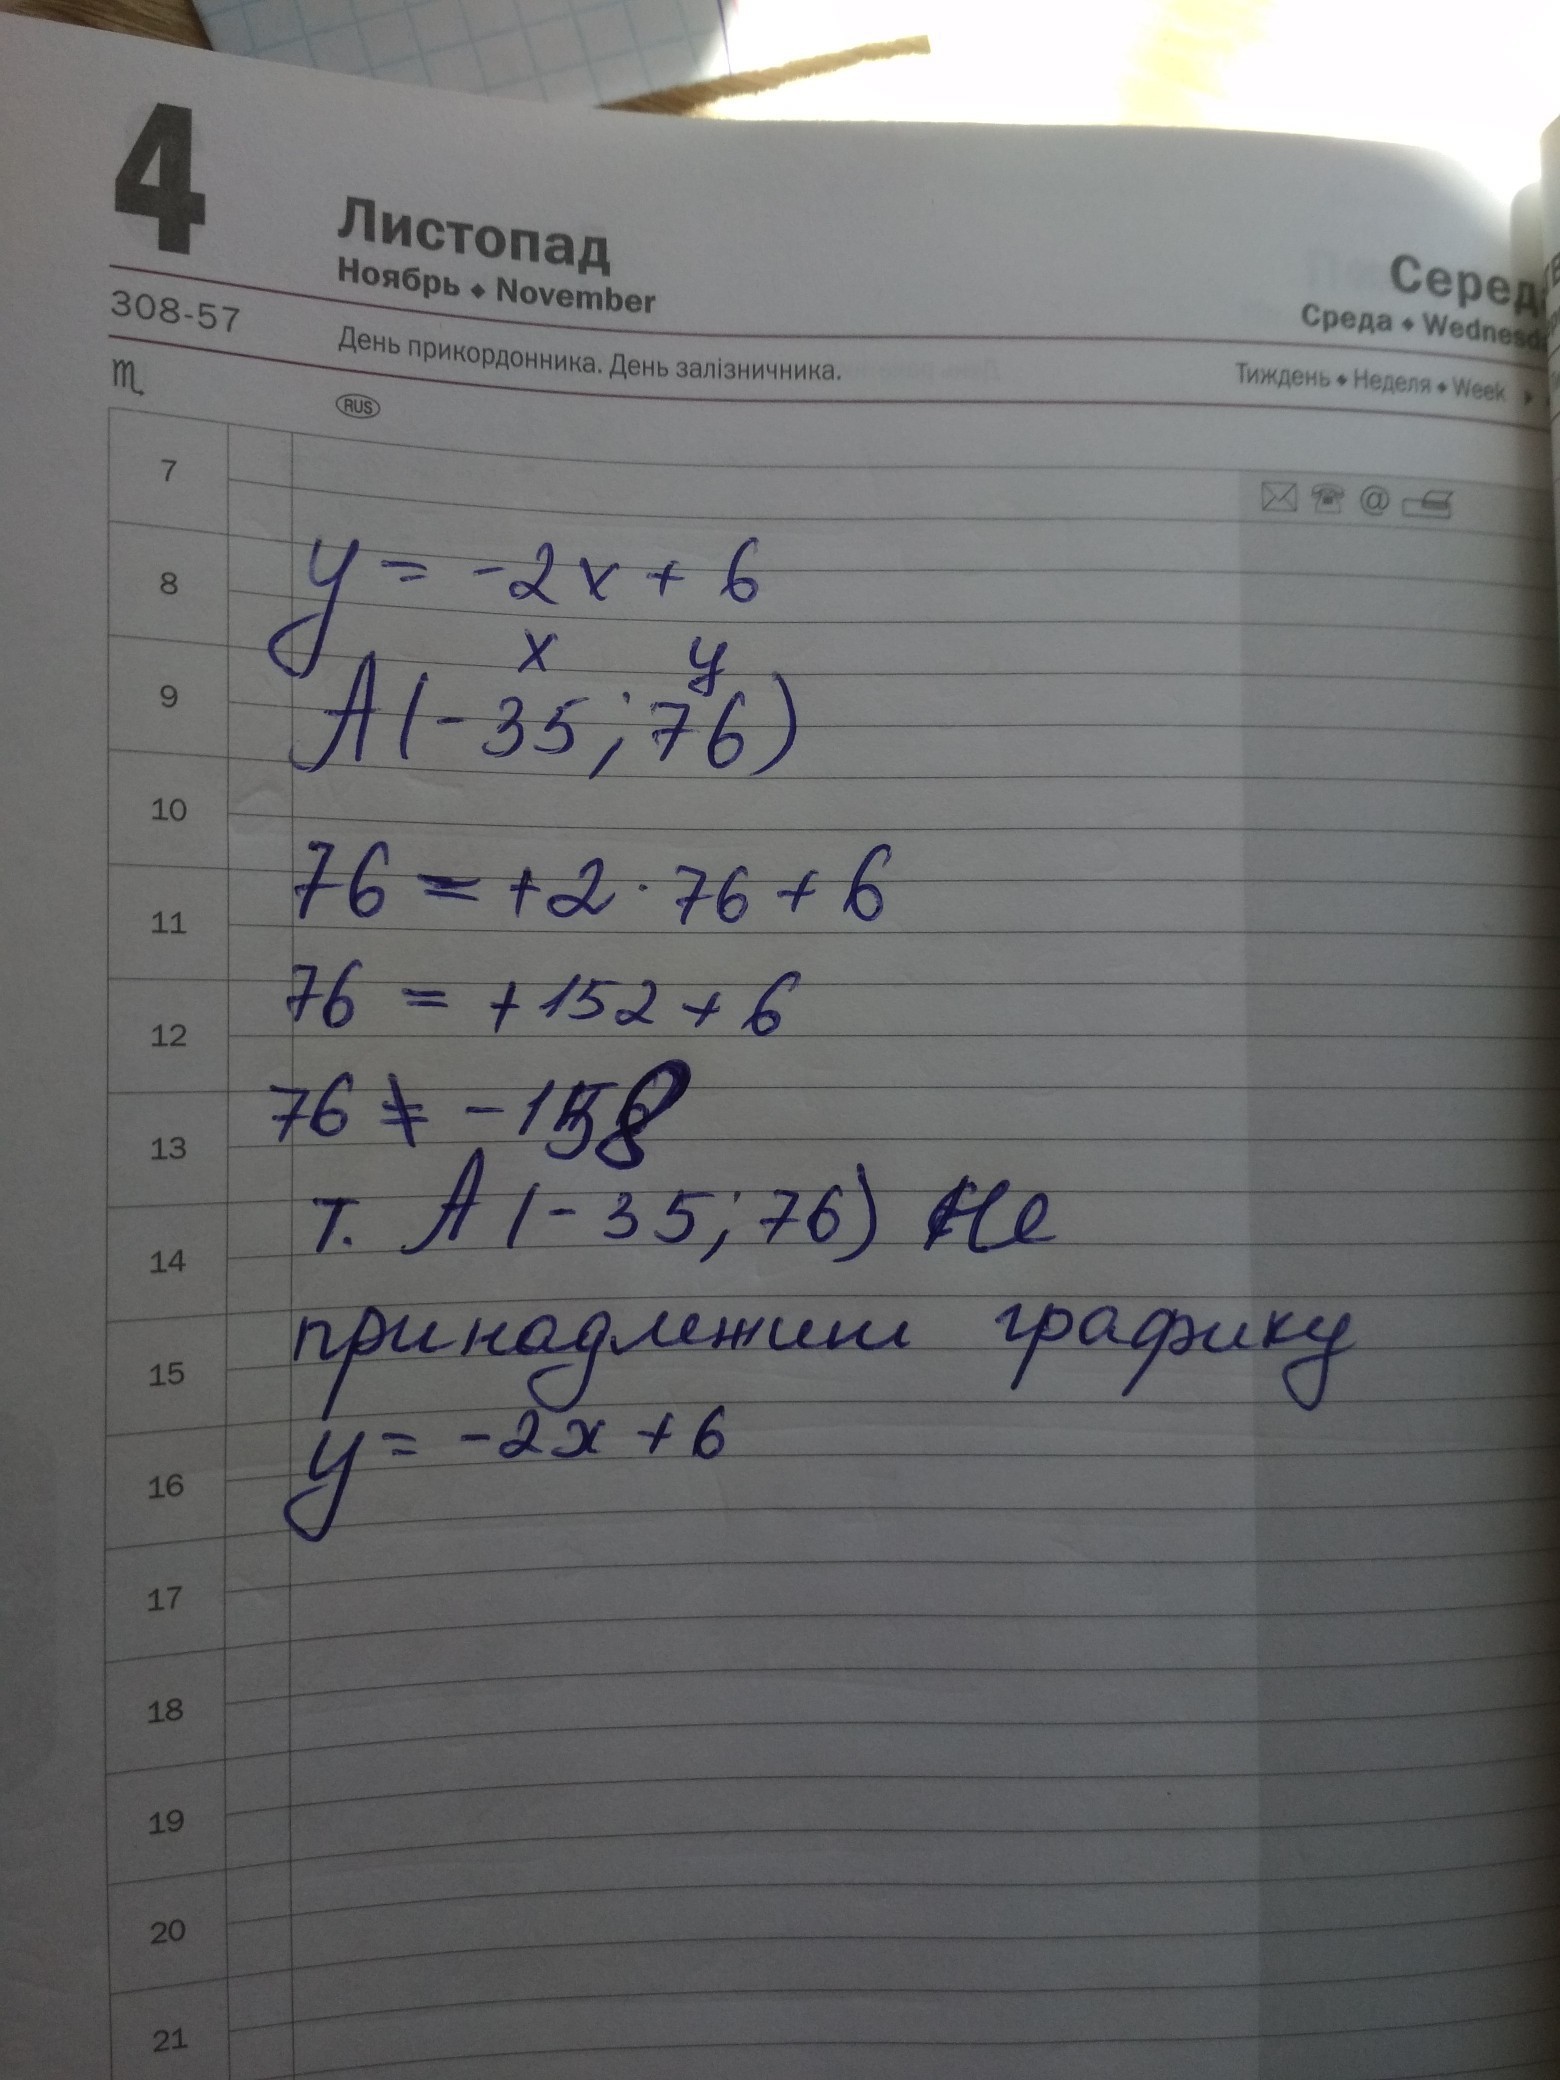 4
Листопад
Ноябрь ◆ November
Серед
Среда ◆ Wednesda
308-57
День прикордонника. День залізничника.
Тиждень ◆ Неделя ◆ Week
RUS
7
@
8
y = -2x + 6
x y
9
A(-35; 76)
10
76 = +2 · 76 + 6
11
76 = +152 + 6
12
76 ≠ -158
13
т. A(-35; 76) не
14
принадлежит графику
15
y = -2x + 6
16
17
18
19
20
21